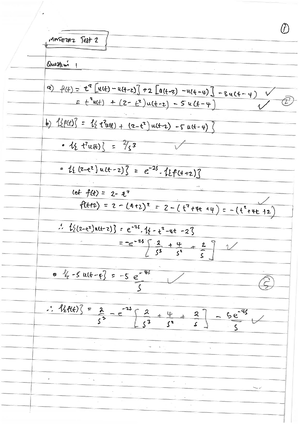 ①
Test 2
Question 1
a) f(t) = t² [u(t) - u(t-2)] + 2 [u(t-2) - u(t-4)] - 3u(t-4) ✓
= t²u(t) + (2-t²)u(t-2) - 5u(t-4) ✓ ②
b) L{f(t)} = L{t²u(t) + (2-t²)u(t-2) - 5u(t-4)}
• L{t²u(t)} = 2/s³ ✓
• L{(2-t²)u(t-2)} = e^-2s · L{f(t+2)}
let f(t) = 2 - t²
f(t+2) = 2 - (t+2)² = 2 - (t²+4t+4) = -(t²+4t+2)
∴ L{(2-t²)u(t-2)} = e^-2s · L{-t²-4t-2}
= -e^-2s [2/s³ + 4/s² + 2/s] ✓
• L{-5u(t-4)} = -5 e^-4s/s ✓ ⑤
∴ L{f(t)} = 2/s³ - e^-2s [2/s³ + 4/s² + 2/s] - 5e^-4s/s ✓